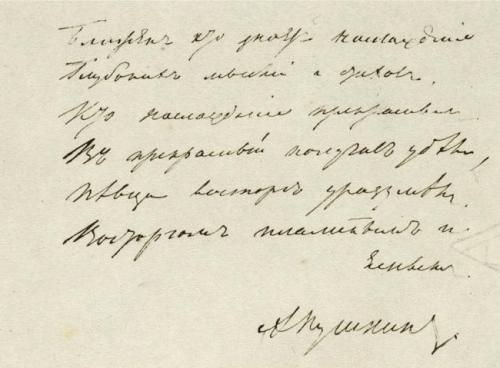 Блаженъ кто знаетъ наслажденіе
Глубокихъ мыслей и стиховъ.
Кто наслажденіе прекраснымъ
Въ прекрасный получивъ удѣлъ,
Пѣвца восторгъ уразумѣлъ
Восторгомъ пламеннымъ и
яснымъ
А Пушкинъ